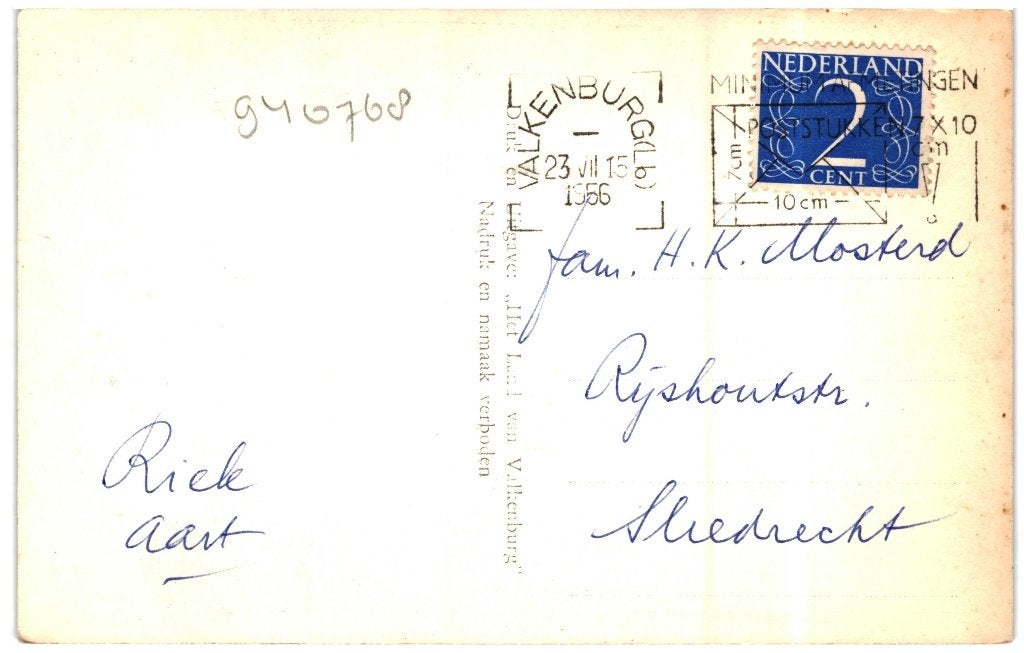 9410768
VALKENBURG (Lb)
23 VII 15
1956
NEDERLAND
2
CENT
POSTSTUKKEN 7 X 10
cm
7cm
10cm
Druk en Uitgave: „Het Land van Valkenburg"
Nadruk en namaak verboden
fam. H. K. Mosterd
Rijshoutstr.
Sliedrecht
Riek
Aart